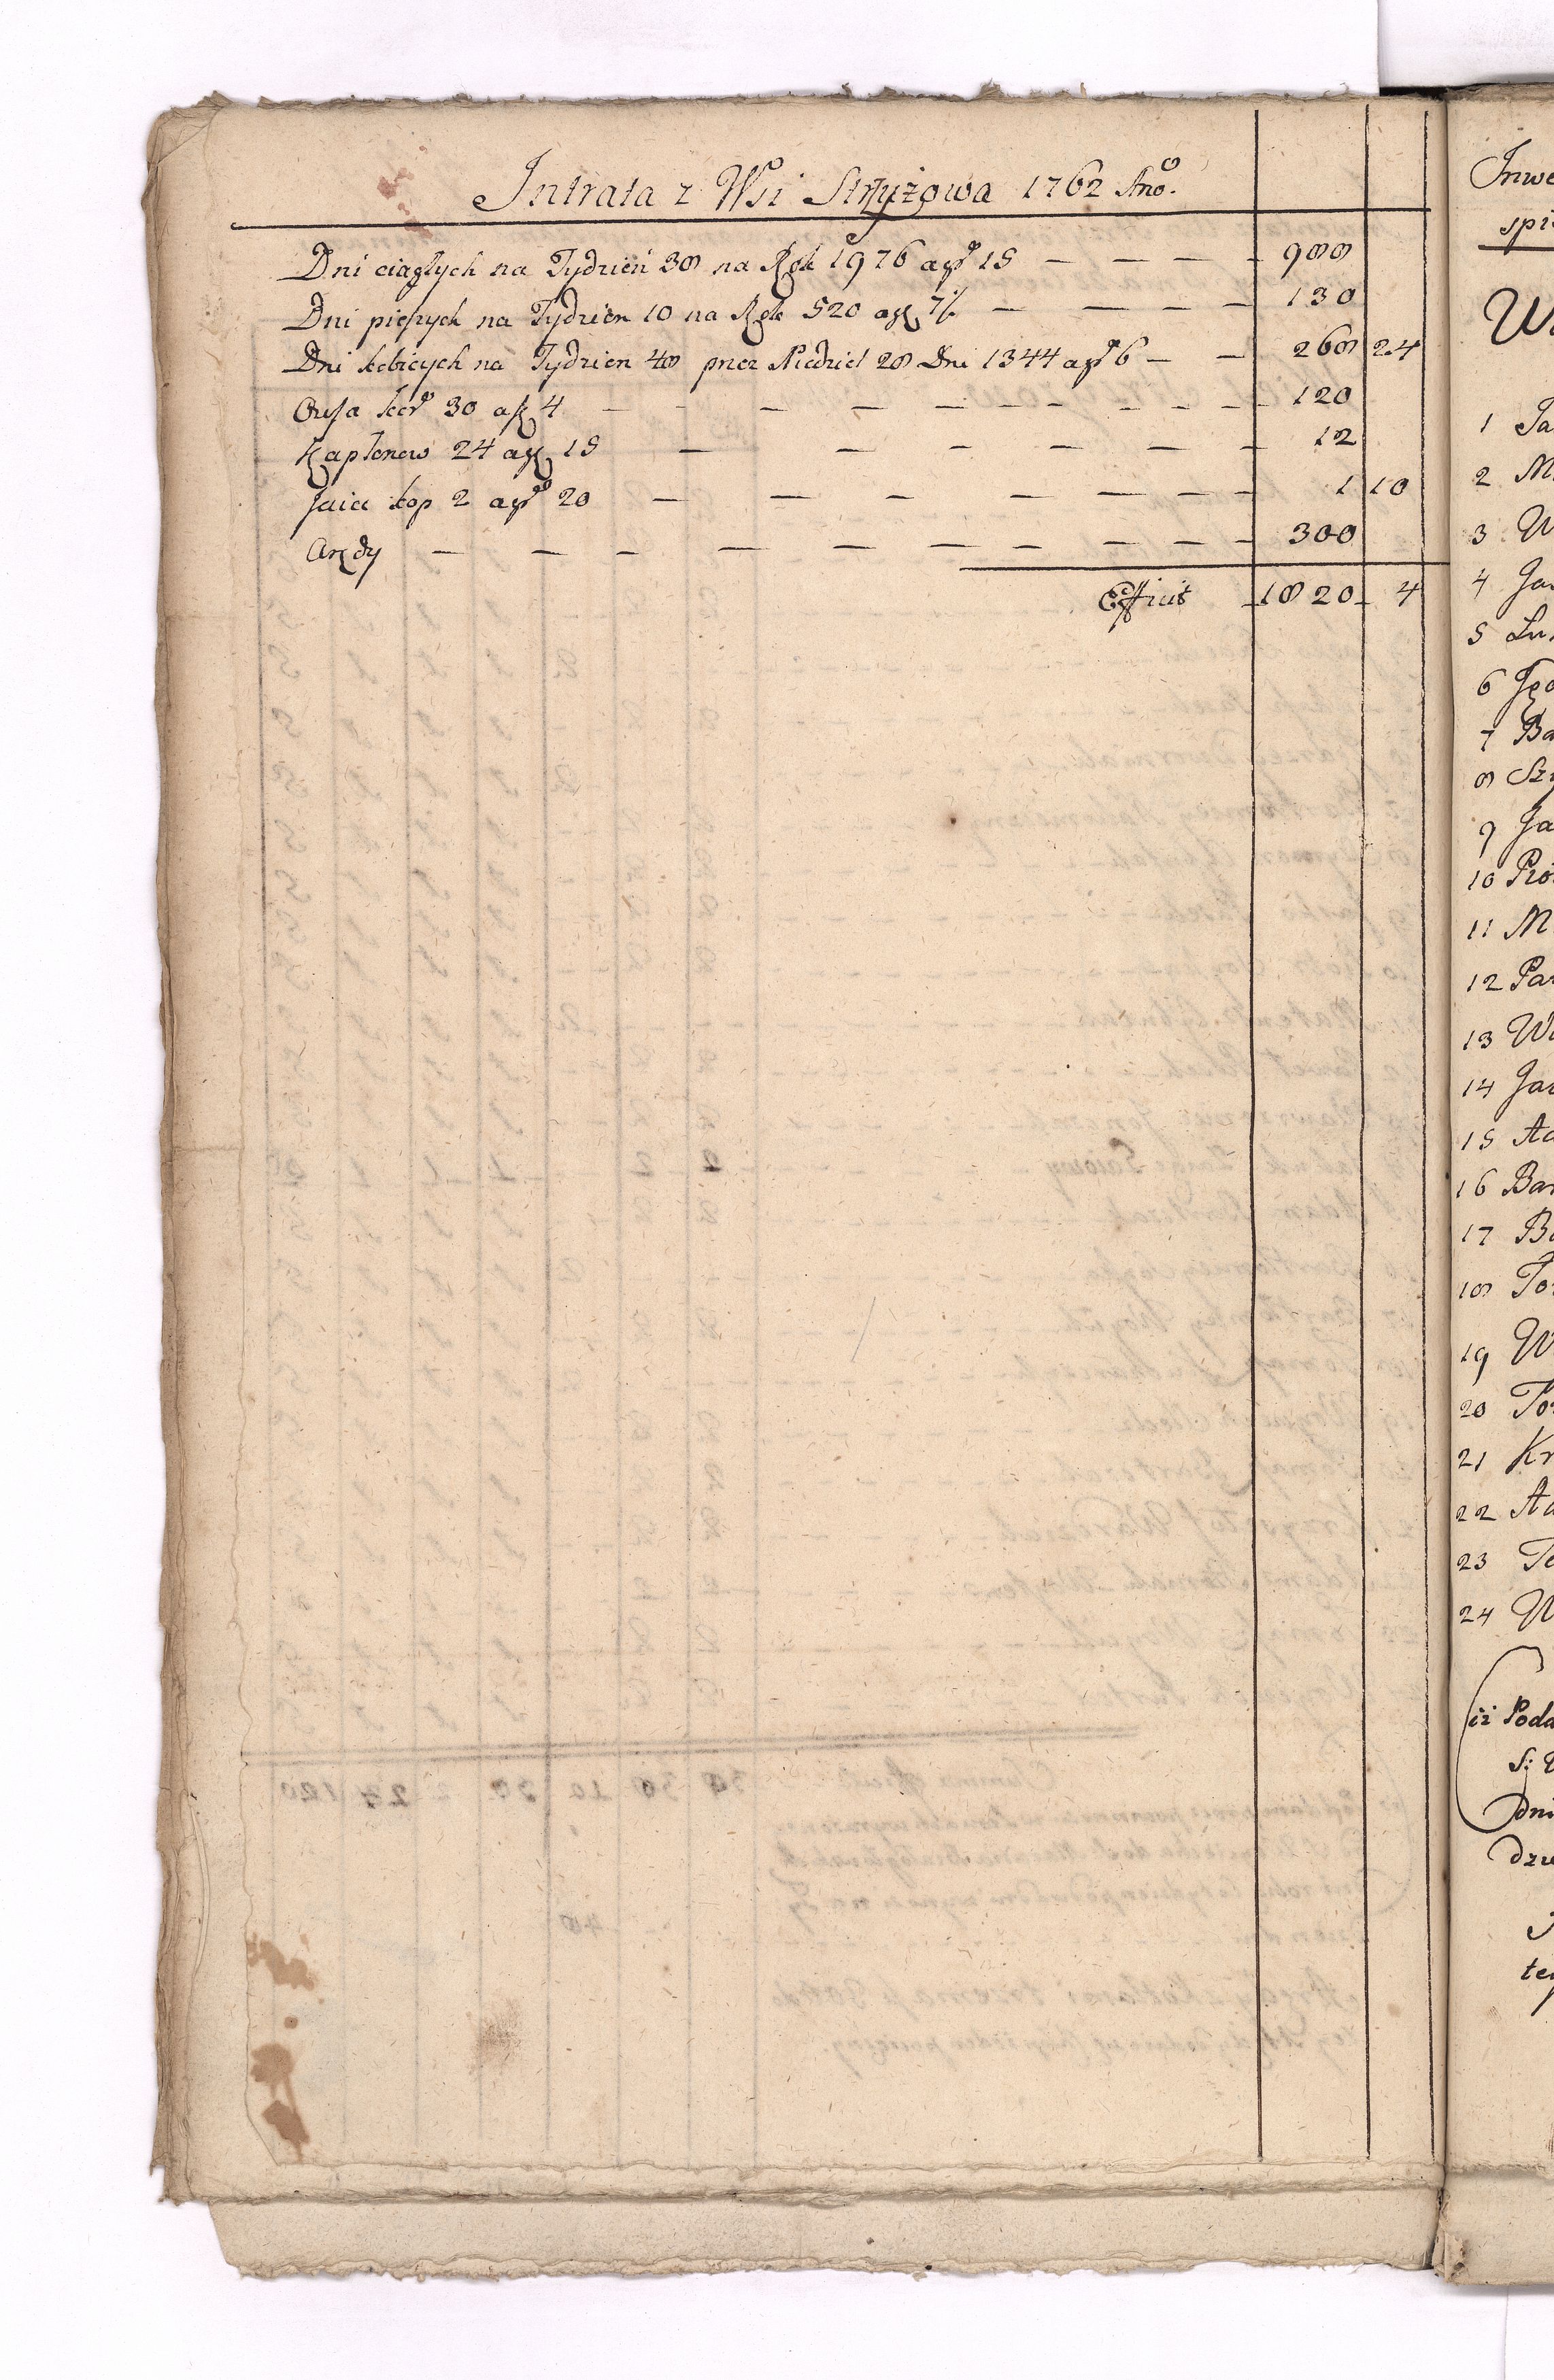 Intrata z Wsi Strzyżowa 1762 Ano.
Dni ciągłych na Tydzień 38 na Rok 1976 a gr 15 — — — — 988
Dni pieszych na Tydzien 10 na Rok 520 a gr 7½ — — — — 130
Dni kobicych na Tydzien 48 przez Niedziel 28 Dni 1344 a gr 6 — — 268 24
Owsa kor 30 a zł 4 — — — — — — — — 120
Kapłonow 24 a gr 15 — — — — — 12
Jaia kop 2 a gr 20 — — — — — — — 1 10
Arędy — — — — — — — — — — 300
Efficit 1820 4
Inwe
spi
W
1 Ja
2 M
3 W
4 Ja
5 Lu
6 Ję
7 Ba
8 Sz
9 Ja
10 Pio
11 M
12 Pa
13 W
14 Ja
15 Ad
16 Bar
17 Ba
18 To
19 W
20 To
21 Kr
22 Ad
23 To
24 W
iż Podd
dni